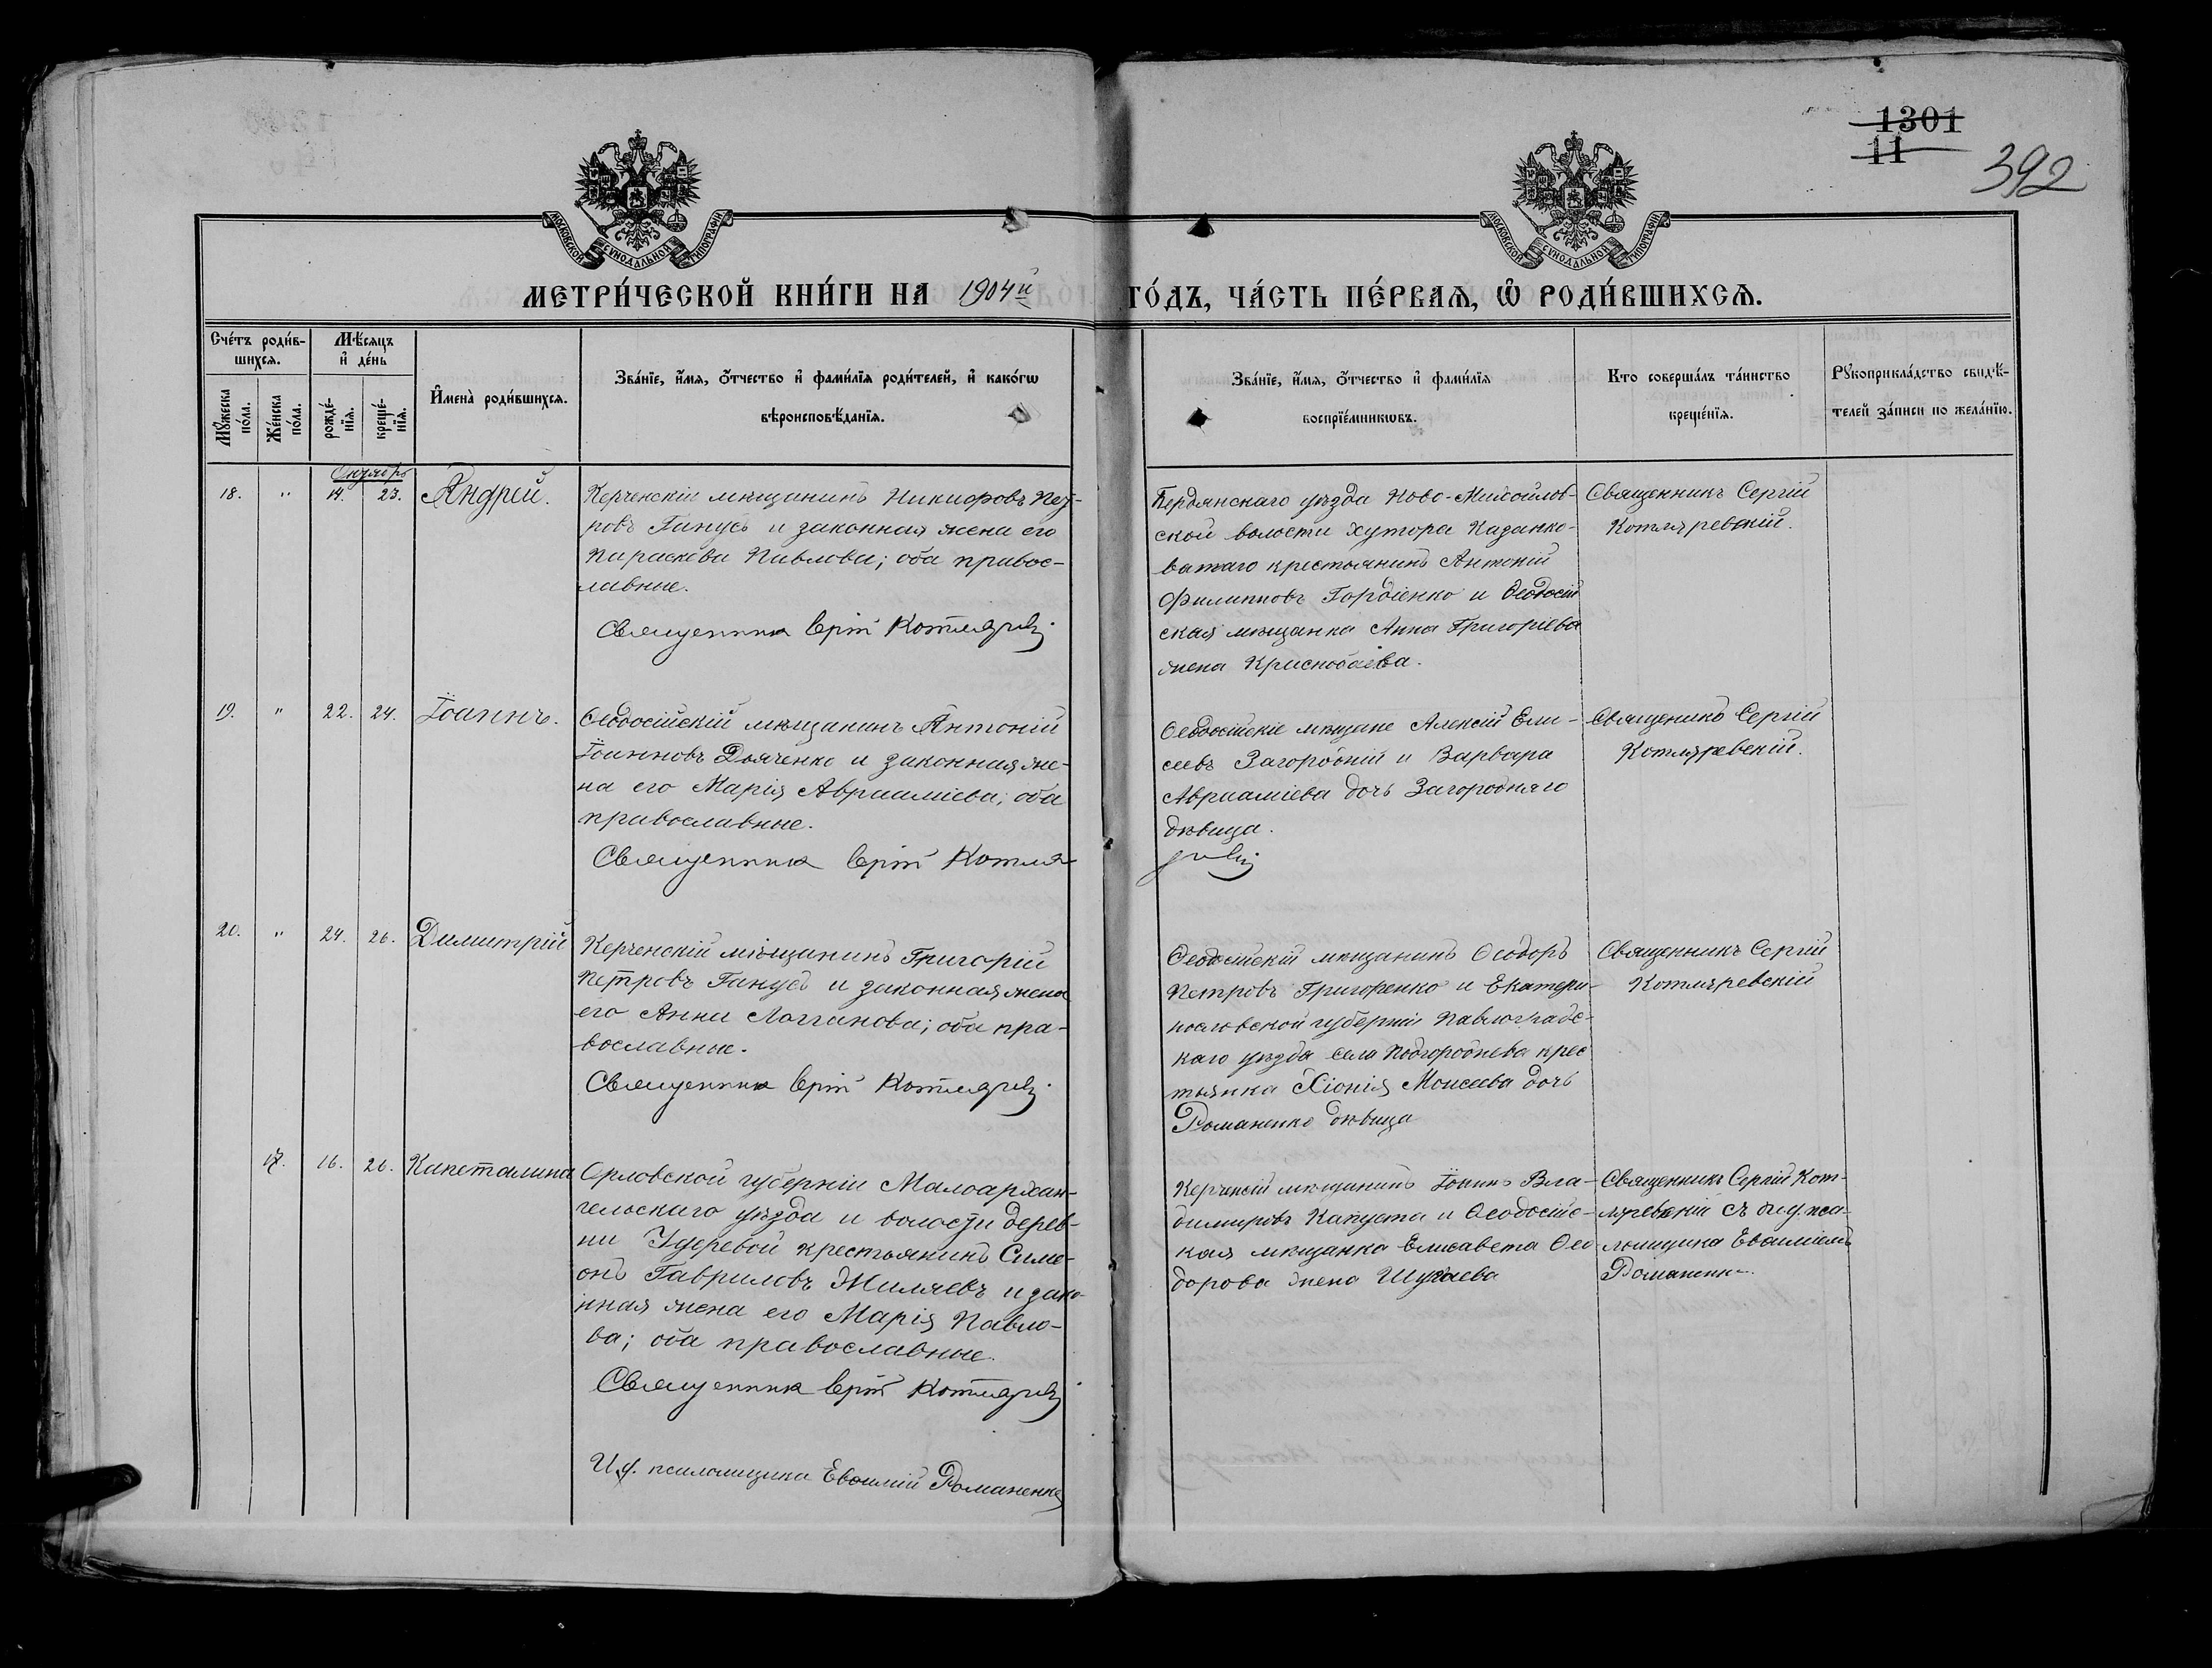 1301
11
392
МОСКОВСКОЙ СѴНОДАЛЬНОЙ ТИПОГРАФІИ
МОСКОВСКОЙ СѴНОДАЛЬНОЙ ТИПОГРАФІИ
МЕТРИ́ЧЕСКОЙ КНИ́ГИ НА 1904й ГО́ДЪ, ЧА́СТЬ ПЕ́РВАЯ, Ѽ РОДИ́ВШИХСЯ.
Сче́тъ роди́в-
шихся.
Мѣ́сяцъ
и҆ де́нь
Мꙋ́жеска по́ла.
Же́нска по́ла.
рожде́-
нїѧ.
креще́-
нїѧ.
И҆мена̀ роди́вшихсѧ.
Зва́нїе, и҆́мѧ, ѻ҆́тчество и҆ фами́лїѧ роди́телей, и҆ како́гѡ
вѣроисповѣ́данїѧ.
Зва́нїе, и҆́мѧ, ѻ҆́тчество и҆ фами́лїѧ
воспрїе́мникѡвъ.
Кто соверша́лъ та́инство
креще́нїѧ.
Рꙋкоприкла́дство свидѣ́-
телей за́писи по жела́нїю.
Октябрь
18. " 14. 23. Андрей.
Керченскій мѣщанинъ Никифоръ Пет-
ровъ Ганусъ и законная жена его
Параскева Павлова; оба правос-
лавные.
Священникъ Сергій Котляревскій
Бердянскаго уѣзда Ново-Михайлов-
ской волости хутора Казанко-
ватаго крестьянинъ Антоній
Филипповъ Гордіенко и Ѳеодосій
ская мѣщанка Анна Григоріева
жена Краснобаева.
Священникъ Сергій
Котляревскій.
19. " 22. 24. Іоаннъ.
Ѳеодосійскій мѣщанинъ Антоній
Іоанновъ Дьяченко и законная же-
на его Марія Авраамiева; оба
православные.
Священникъ Сергій Котля-
ревскій
Ѳеодосійскіе мѣщане Алексій Ели-
сеевъ Загородній и Варвара
Авраамiева дочь Загородняго
дѣвица.
Священникъ Сергій
Котляревскій.
20. " 24. 26. Димитрій
Керченскій мѣщанинъ Григорій
Петровъ Ганусъ и законная жена
его Анна Логганова; оба пра-
вославные.
Священникъ Сергій Котляревскій
Ѳеодосійскій мѣщанинъ Ѳеодоръ
Петровъ Григоренко и Екатери-
нославской губерніи Павлоградс-
каго уѣзда села Подгороднева крес
тьянка Хіонія Моисеева дочь
Романенко дѣвица
Священникъ Сергій
Котляревскій
17. 16. 26. Капеталина
Орловской губерніи Малоархан-
гельскаго уѣзда и волости дерев-
ни крестьянинъ Симе-
онъ Гавриловъ Жиляевъ и зако-
нная жена его Марія Павло-
ва; оба православные.
Священникъ Сергій Котляревскій
И. д. псаломщика Евфимій Романенко
Керченскій мѣщанинъ Іоаннъ Вла-
димировъ Капуста и Ѳеодосійс-
кая мѣщанка Елисавета Ѳео
дорова жена
Священникъ Сергій Кот-
ляревскій съ и. д. пса-
ломщика Евфиміемъ
Романенко.